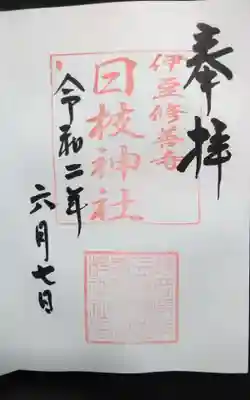 奉拝
伊豆修善寺
日枝神社
令和二年
六月七日